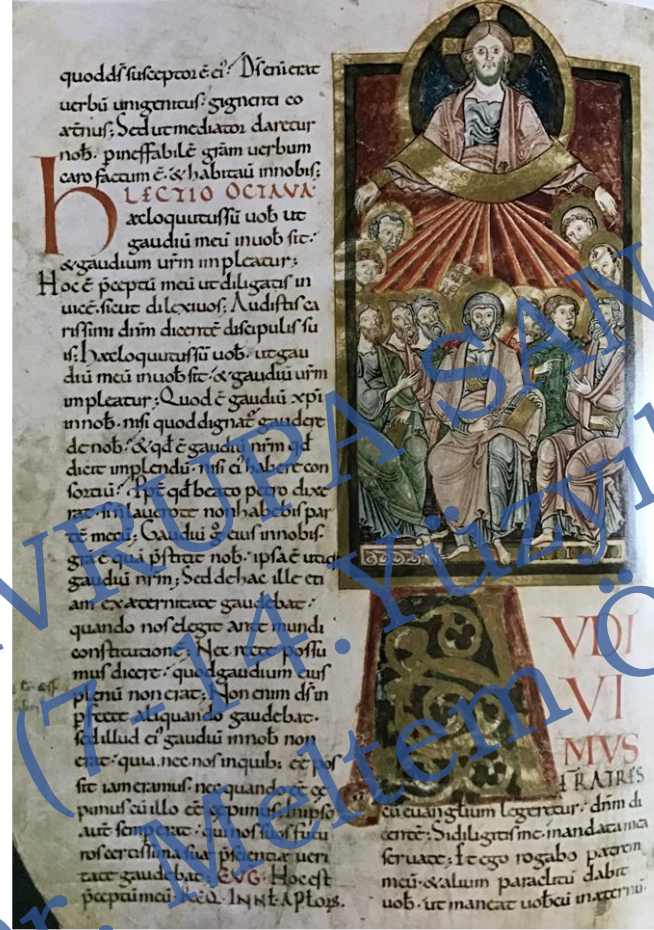 quod dˢ susceptor ē ei᾽. Dˢ eni erat
verbū unigenitus. gignenti co
æt̄nus; Sed ut mediator daretur
nob̄. p ineffabilē grām verbum
caro factum ē. & habitaū in nobis;
LECTIO OCTAVA.
hæc loquutus sū uob̄ ut
gaudiū meū in uob̄ sit.
& gaudium ur̄m impleatur;
Hoc ē p̄ceptū meū ut diligatis in
uicē. sicut dilexi uos; Audistis ca
rissimi dn̄m dicentē discipulis su
is; hæc loquutus sū uob̄. ut gau
diū meū in uob̄ sit. & gaudiū ur̄m
impleatur; Quod ē gaudiū xp̄i
in nob̄. nisi quod dignat᾽ gaudere
de nob̄. & qd̄ ē gaudiū nr̄m qd̄
dicit implendū. nisi ei᾽ habere con
sortiū. Ppt̄ qd̄ beato petro dixe
rat. si n̄ lauero te non habebis par
tē mecū; Gaudiū g̊ eius in nobis.
gr̄a ē quā p̄stitit nob̄. ipsa ē
gaudiū nr̄m; Sed de hac ille eti
am ex æternitate gaudebat.
quando nos elegit ante mundi
constitutionē; Nec recte possu
mus dicere. quod gaudium eius
plenū non erat; Non enim dˢ in
p̄fecte aliquando gaudebat.
sed illud ei᾽ gaudiū in nob̄ non
erat. quia nec nos in quib; cē pos
sit iam eramus. nec quando
cū illo
aut semper erat. qui nos suos futu
ros certissima sua p̄scientia ueri
tate gaudebat. EVG. Hoc est
p̄ceptū meū.
AVDI
VI
MVS
FRATRES
cū euanglium legeretur. dn̄m di
centē; Si diligitis me. mandata mea
seruate; Et ego rogabo patrem
meū. & alium paraclitū dabit
uob̄. ut maneat uobcū in æternū.
AVRUPA SAN
(7-14.Yüzyıl
Meltem Ö